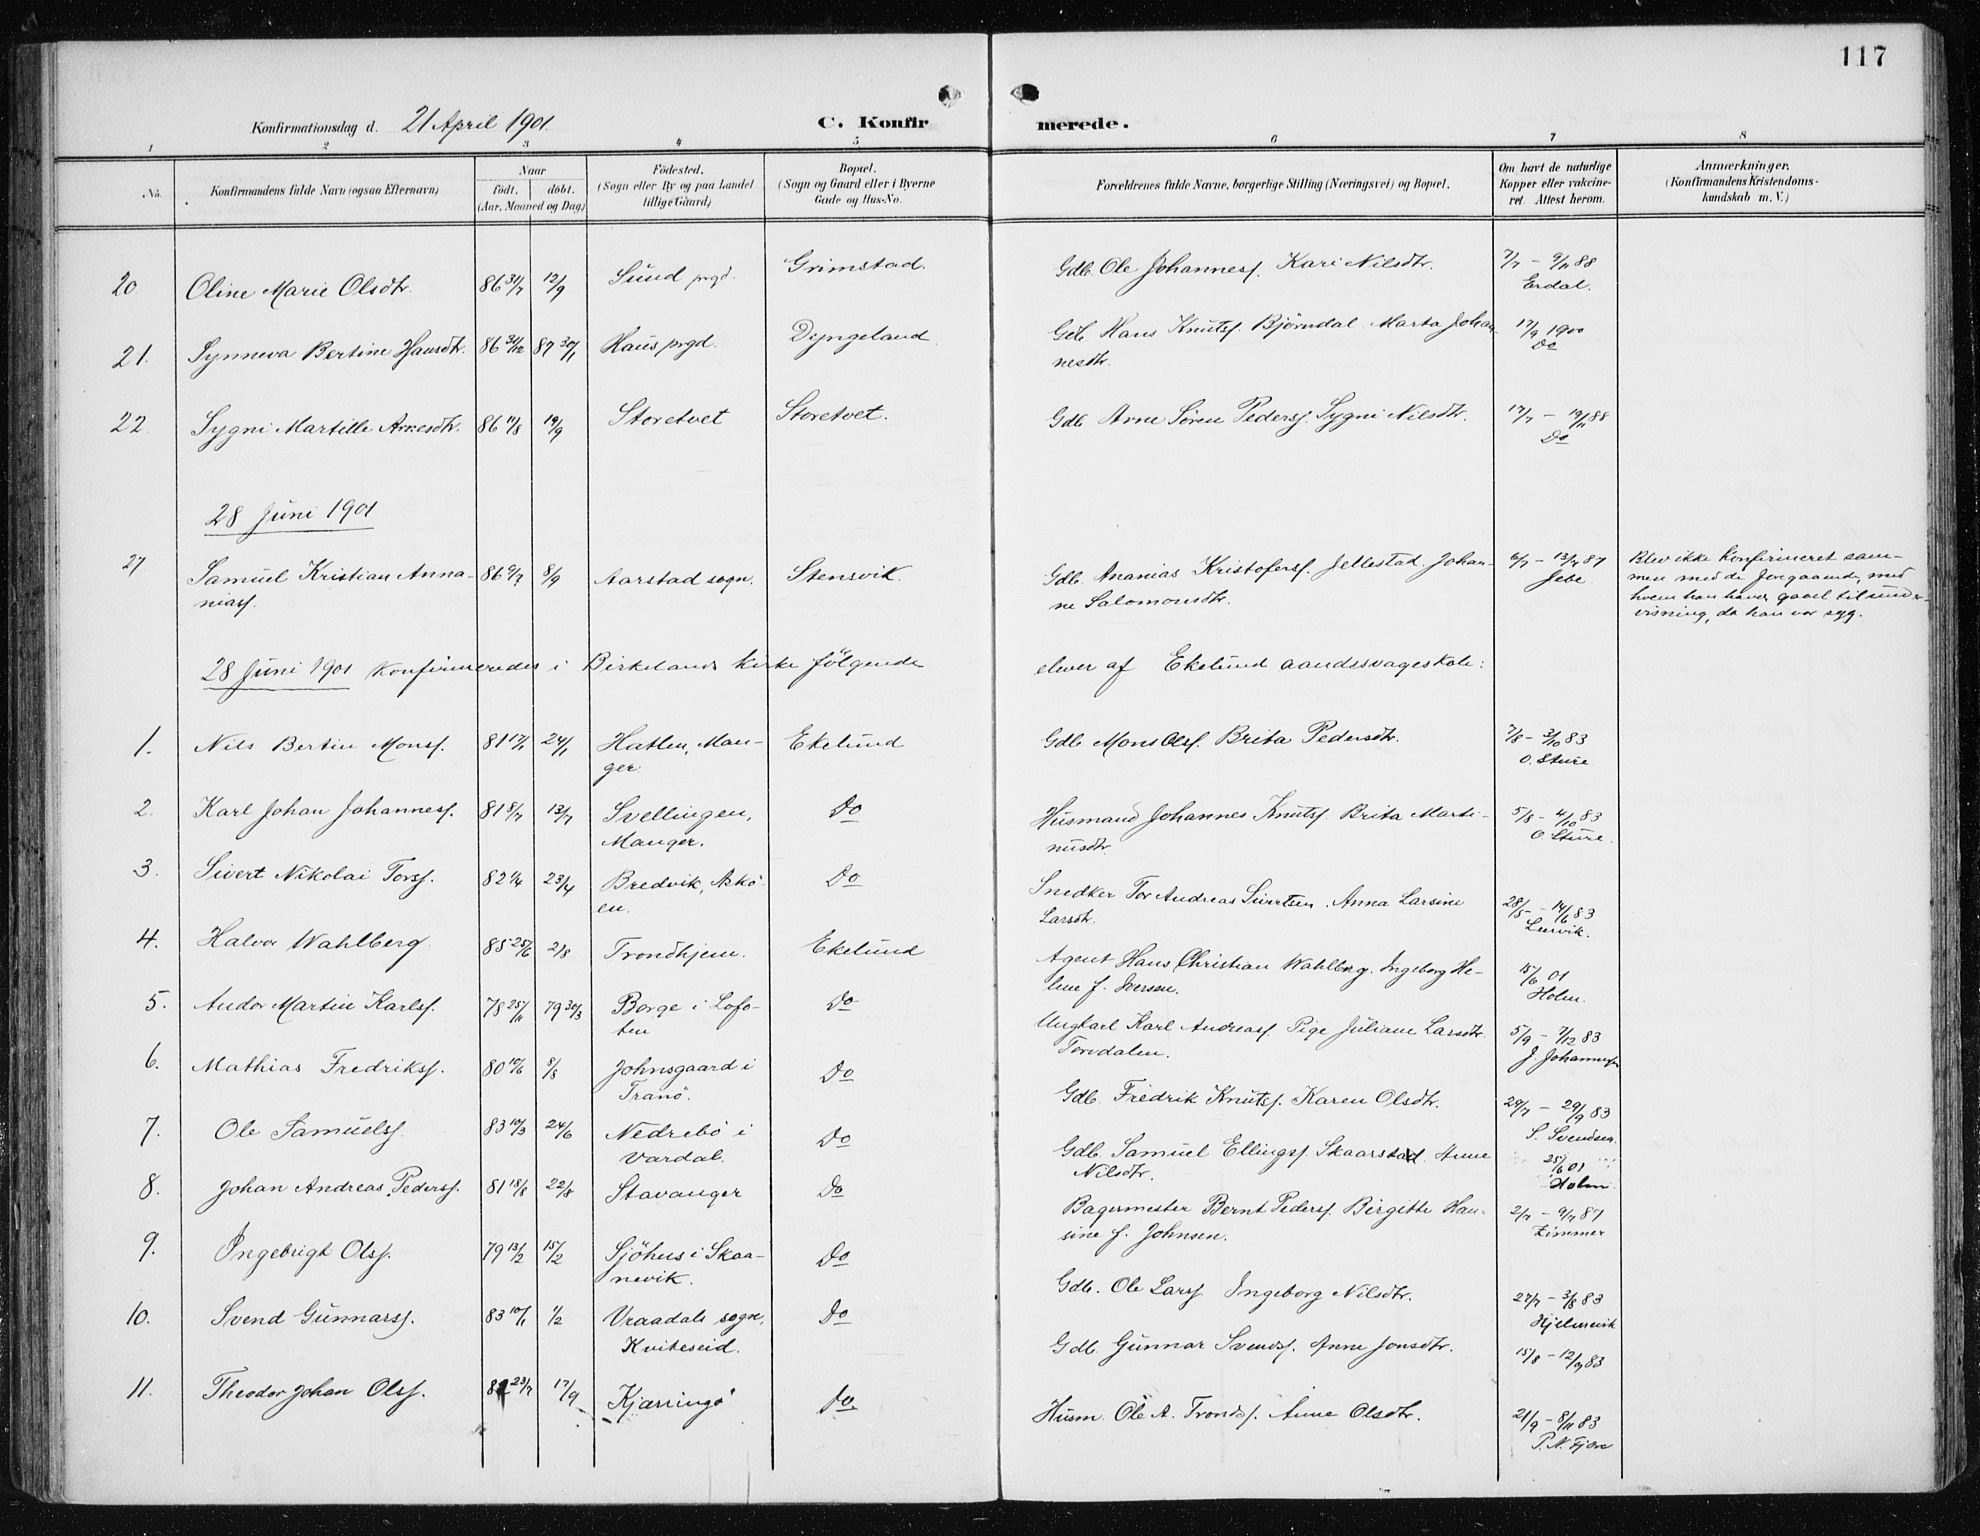 117
Konfirmationsdag d. 21 April 1901. C. Konfirmerede.
1 2 3 4 5 6 7 8
No. Konfirmandens fulde Navn (ogsaa Efternavn)
Naar født. døbt. (Aar, Maaned og Dag)
Födested. (Sogn eller By og paa Landet tillige Gaard)
Bopæl. (Sogn og Gaard eller i Byerne Gade og Hus-No.
Forældrenes fulde Navne, borgerlige Stilling (Næringsvei) og Bopæl.
Om havt de naturlige Kopper eller vakcineret. Attest herom.
Anmærkninger. (Konfirmandens Kristendomskundskab m. V.)
20 Oline Marie Olsdtr. 86 31/7 12/9 Sund prgd. Grimstad. Gdb. Ole Johannesf. Kari Nilsdtr. 7/7 - 9/11 88
Erdal.
21. Synneva Bertine Hansdtr. 86 31/12 87 30/1 Haus prgd. Dyngeland Gdb. Hans Knutsf. Bjørndal. Marta Johan- 17/9 1900
nesdtr. Do
22. Sygni Martille Arnesdtr. 86 11/8 19/9 Storetvet Storetvet. Gdb. Arne Søren Pedersf. Sygni Nilsdtr. 17/7 - 19/11 88
Do
28 Juni 1901
27 Samuel Kristian Anna- 86 9/7 8/9 Aarstad sogn. Stensvik. Gdb. Ananias Kristofersf. Jellestad. Johan- 6/7 - 13/7 87 Blev ikke konfirmeret sam-
niasf. ne Salomonsdtr. Jebe men med de foregaaende, med
hvem han havde gaaet til under-
visning, da han var syg.
28 Juni 1901 konfirmeredes i Birkelands kirke følgende elever af Ekelund aandssvageskole:
1. Nils Bertin Monsf. 81 17/1 24/1 Hatlen, Man- Ekelund Gdb Mons Olsf. Brita Pedersdtr. 7/8 - 3/10 83
ger. O. Sture
2. Karl Johan Johannesf. 81 8/7 13/7 Svellingen, Do Husmand Johannes Knutsf. Brita Marti- 5/8 - 4/10 83
Manger. nusdtr O. Sture.
3. Sivert Nikolai Torsf. 82 1/4 23/4 Bredvik, Askö- Do Snedker Tor Andreas Sivertsen. Anna Larsine 28/5 - 14/6 83
en. Larsdtr. Lervik.
4. Halvor Wahlberg. 85 25/6 2/8 Trondhjem. Ekelund Agent Hans Christian Wahlberg. Ingeborg He- 15/6 01
lene f. Iversen. Holm.
5. Andor Martin Karlsf. 78 25/11 79 30/3 Borge i Lofo- Do Ungkarl Karl Andreasf. Pige Juliane Larsdtr. 5/9 - 7/12 83
ten Torsdalen. J. Johannesen
6. Mathias Fredriksf. 80 10/6 8/8 Johnsgaard i Do Gdb. Fredrik Knutsf. Karen Olsdtr. 29/7 - 29/9 83
Tranö. S. Svendsen.
7. Ole Samuelsf. 83 10/3 24/6 Nedrebö i Do Gdb. Samuel Ellingsf. Skaarstad. Anne 25/6 01
Vardal. Nilsdtr. Holm.
8. Johan Andreas Pedersf. 81 18/8 22/8 Stavanger Do Bagermester Bernt Pedersf. Birgitte Han- 2/7 - 9/7 87
sine f. Johnsen. Zimmer
9. Ingebrigt Olsf. 79 13/2 15/2 Sjöhus i Skaa- Do Gdb. Ole Larsf Ingeborg Nilsdtr. 27/7 - 3/8 83
nevik. Hjelmevik
10. Svend Gunnarsf. 83 10/1 1/2 Vraadals sogn, Do Gdb. Gunnar Svendsf. Anne Jonsdtr. 15/8 - 12/9 83
Kviteseid.
11. Theodor Johan Olsf. 82 23/7 17/9 Kjærringö Do. Husm. Ole A. Trondsf. Anne Olsdtr. 21/9 - 8/11 83
P. N. Fjære